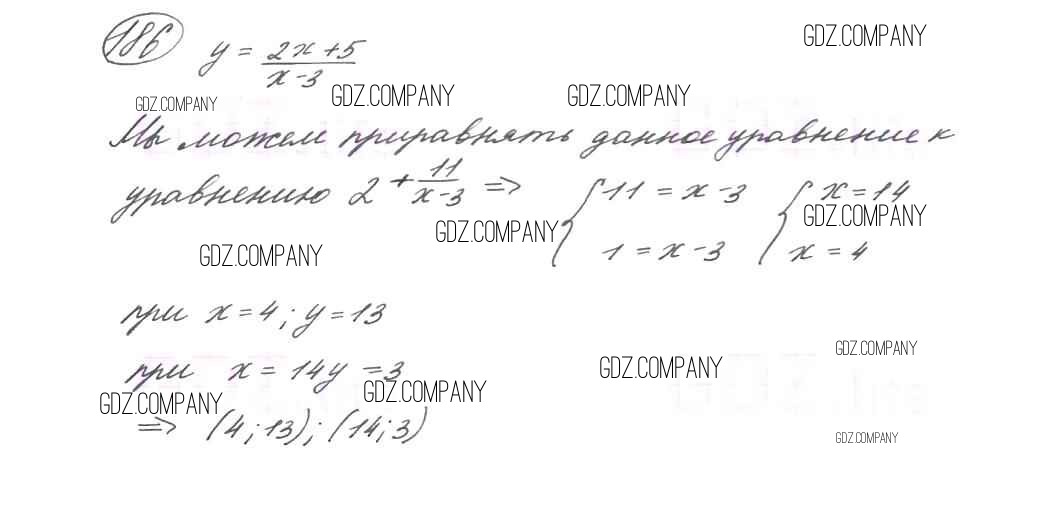 186 y = (2x+5)/(x-3)
GDZ.COMPANY
GDZ.COMPANY GDZ.COMPANY GDZ.COMPANY
Мы можем приравнять данное уравнение к
уравнению 2 + 11/(x-3) => { 11 = x-3 { x = 14
GDZ.COMPANY GDZ.COMPANY
1 = x-3 x = 4
GDZ.COMPANY
при x = 4; y = 13
GDZ.COMPANY
при x = 14 y = 3
GDZ.COMPANY
GDZ.COMPANY GDZ.COMPANY
=> (4; 13); (14; 3)
GDZ.COMPANY